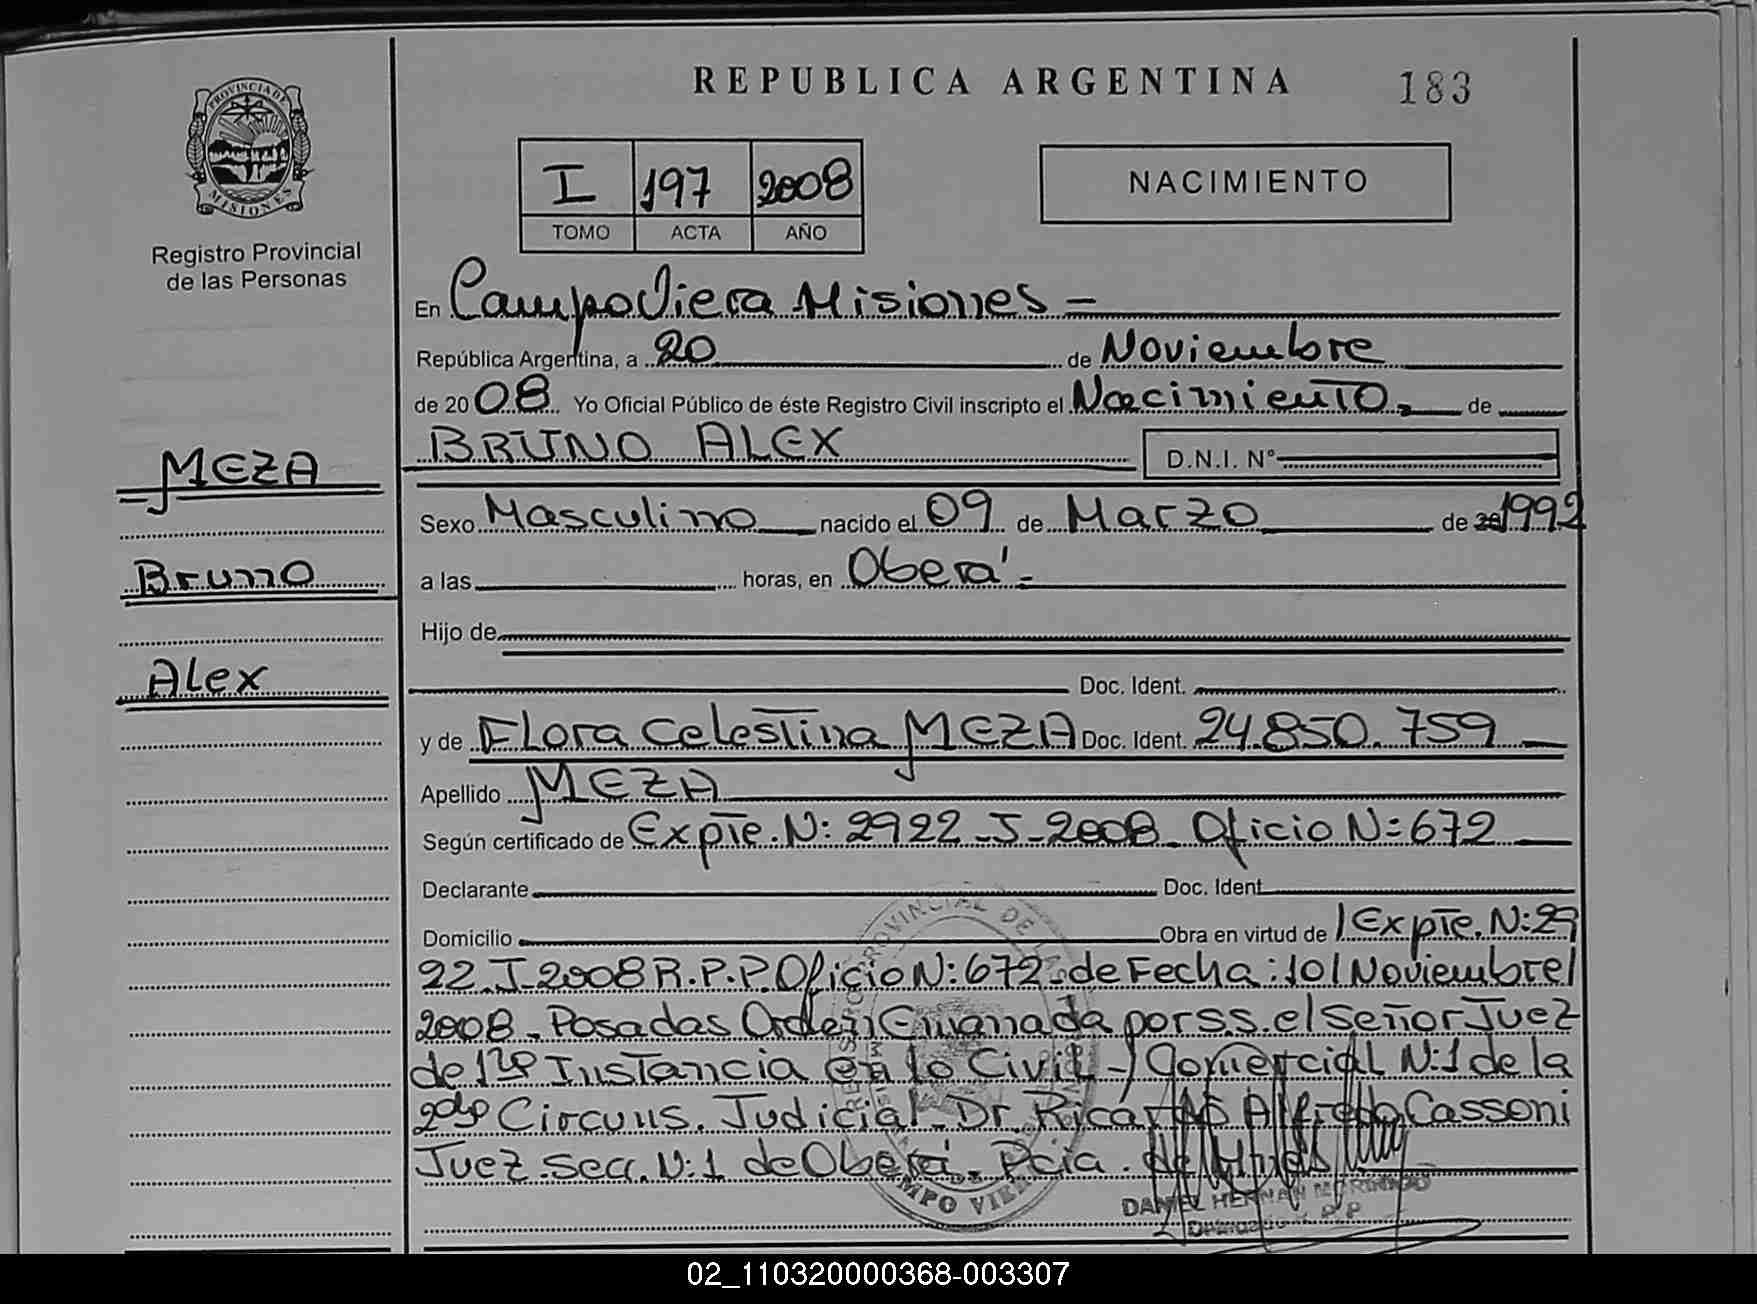 REPUBLICA ARGENTINA
183
PROVINCIA DE
MISIONES
Registro Provincial
de las Personas
I 197 2008
TOMO ACTA AÑO
NACIMIENTO
En Campo Viera Misiones =
República Argentina, a 20 de Noviembre
de 2008 Yo Oficial Público de éste Registro Civil inscripto el Nacimiento de
BRUNO ALEX D.N.I. N°
MEZA
Sexo Masculino nacido el 09 de Marzo de 20 1992
Bruno
a las horas, en Oberá
Hijo de
Alex
Doc. Ident.
y de Flora Celestina MEZA Doc. Ident. 24.850.759
Apellido MEZA
Según certificado de Expte. N: 2922-J-2008- Oficio N=672
Declarante Doc. Ident
Domicilio Obra en virtud de Expte. N:29
22-J-2008 R.P.P. Oficio N:672- de Fecha: 10/Noviembre/
2008 - Posadas Orden Emanada por S.S. el Señor Juez
de 1ra Instancia en lo Civil - Comercial N:1 de la
2da Circuns. Judicial - Dr. Ricardo Alfredo Cassoni
Juez. Secr. N:1 de Oberá - Pcia. de
DANIEL HERNAN
02_110320000368-003307